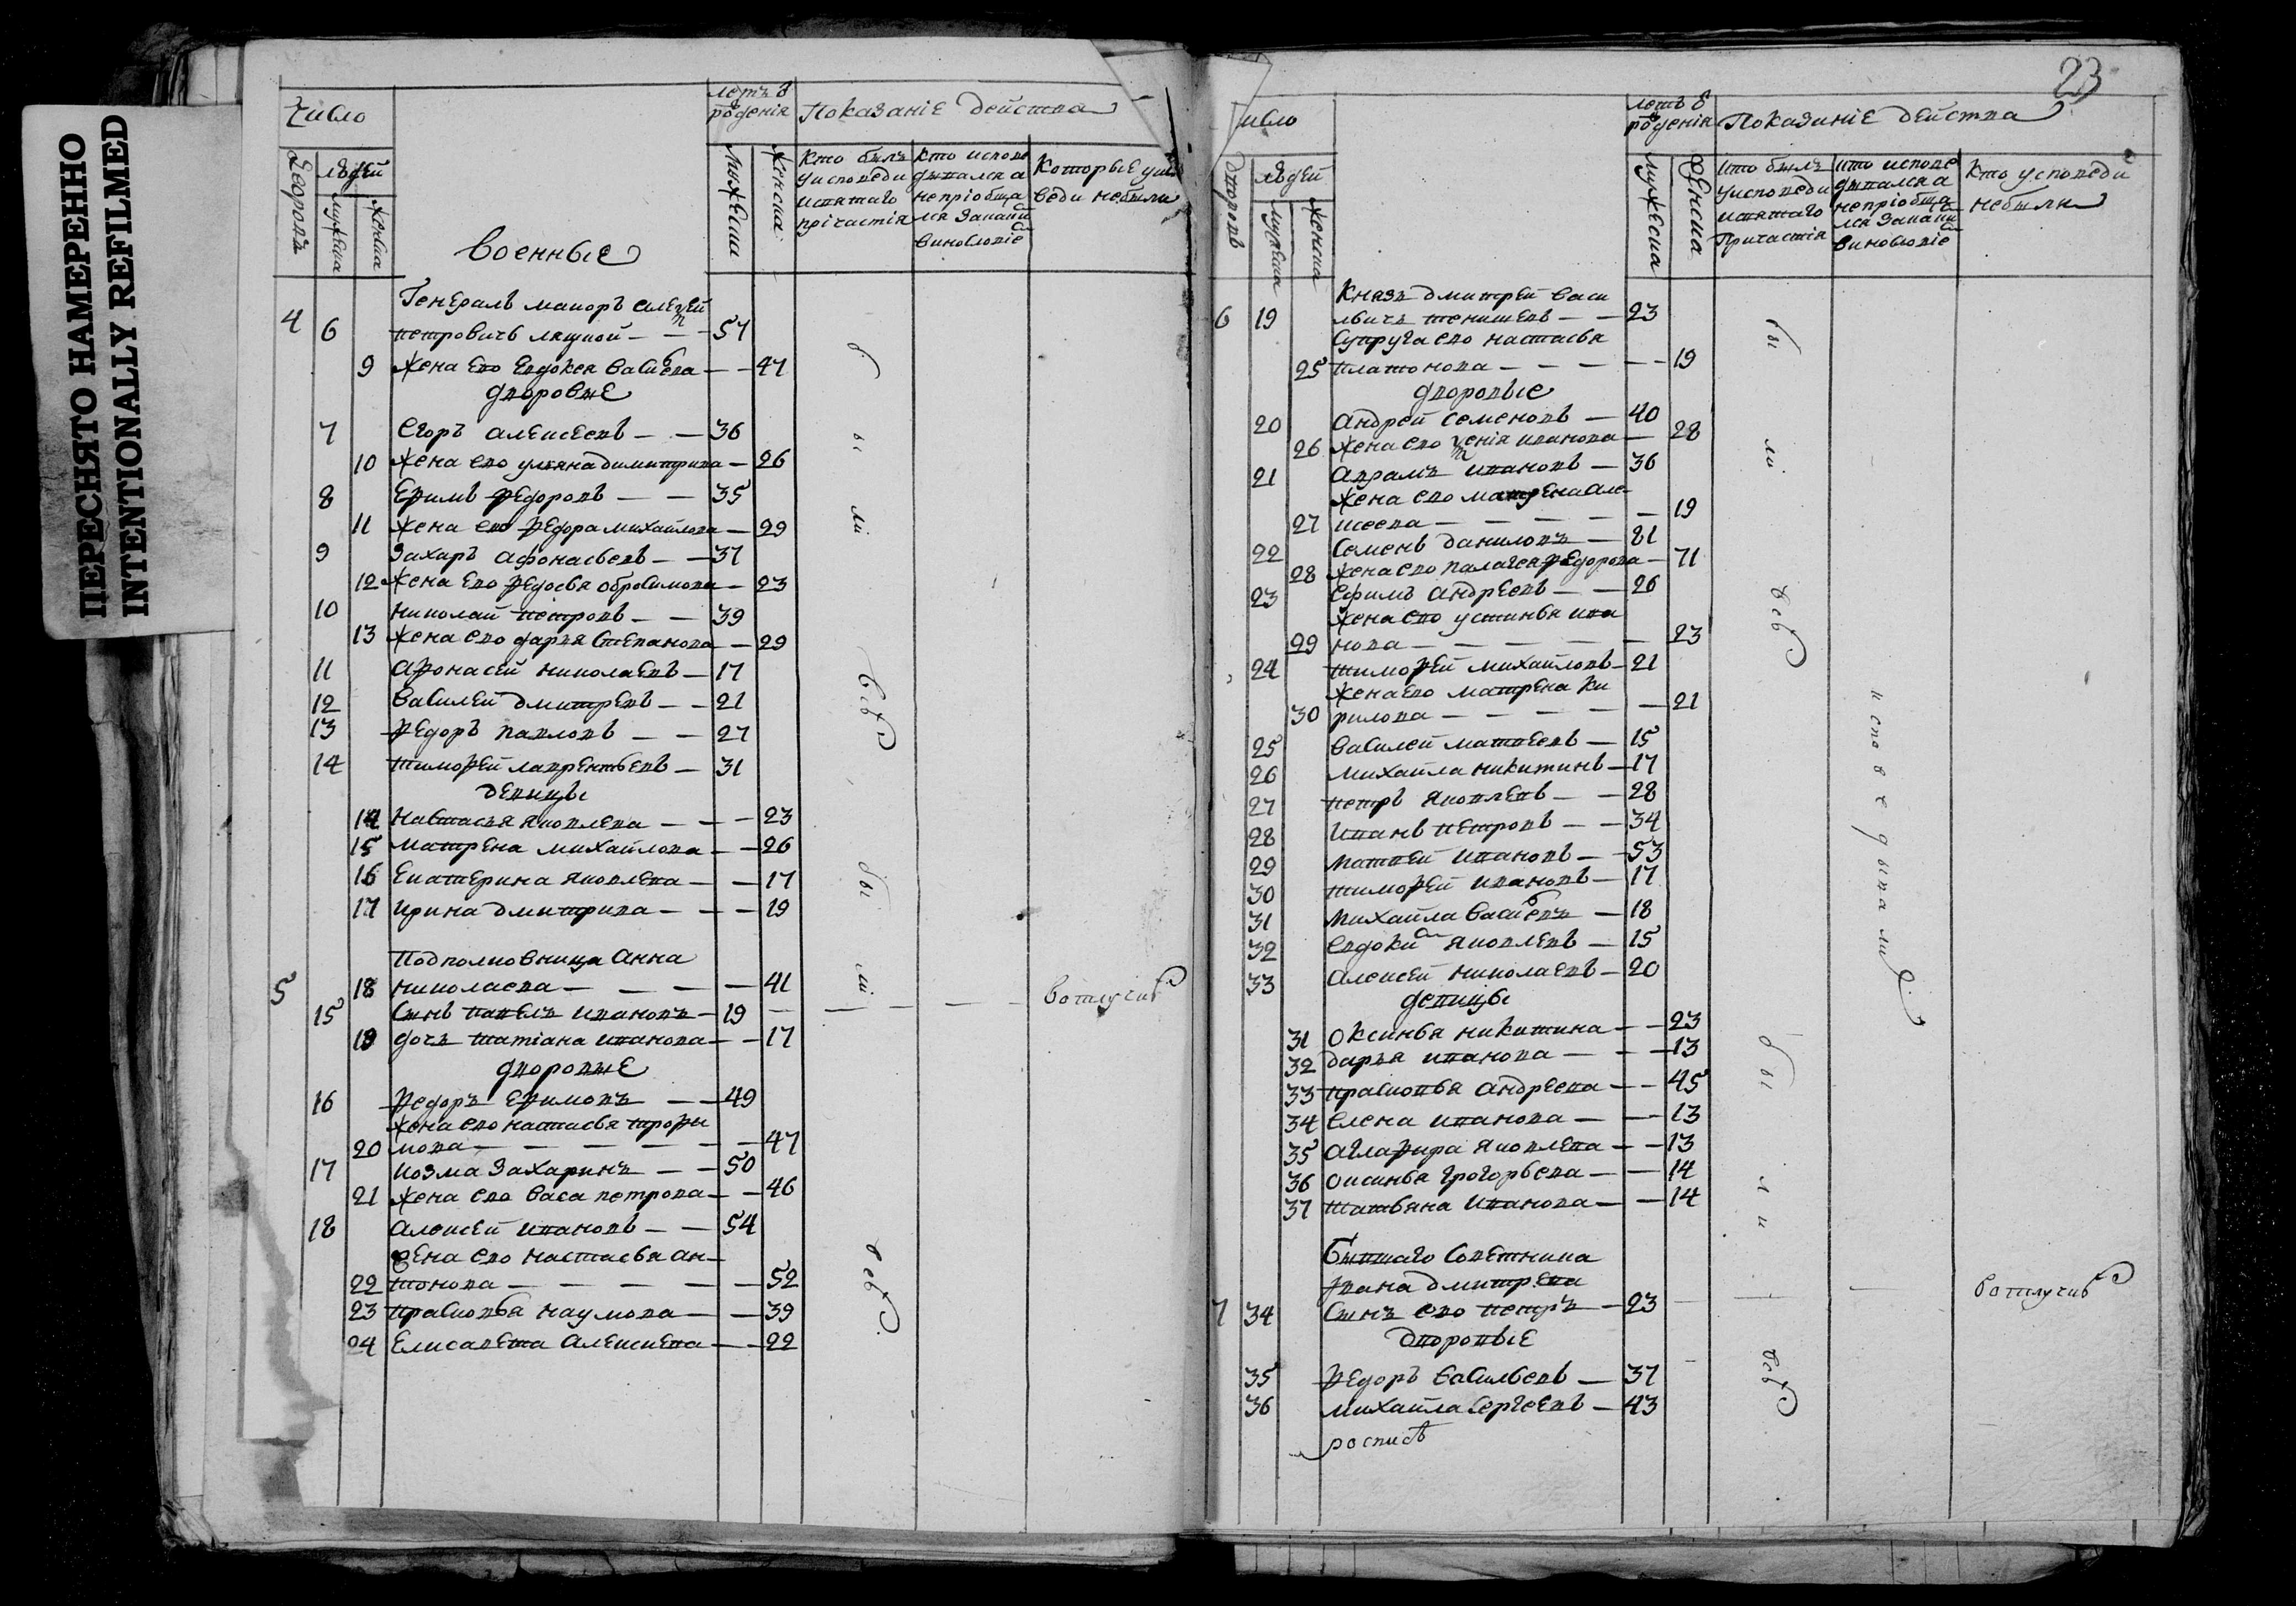 ПЕРЕСНЯТО НАМЕРЕННО
INTENTIONALLY REFILMED
Число
летъ ѿ роденiя
Показанiе действа
Дворовъ
людей
мужеска
женска
военные
мужеска
женска
кто былъ у исповеди и святаго прiчастiя
кто исповедывался а непрiобщался за каки виновлопiе
Которые у исповеди небыли
4 6 Генералъ маиоръ алексей
петровичь ляцкой — — 57
9 жена ево евдокея васиева — — 47
дворовые
7 Егоръ алексеевъ — — 36
10 жена ево ульяна димитрива — 26
8 Ефимъ федоровъ — — 35
11 жена ево федора михайлова — 29
9 Захаръ афонасьевъ — — 37
12 жена ево федосья обросимова — 23
10 николай петровъ — — 39
13 жена ево дарья степанова — 29
11 афонасей николаевъ — 17
12 василей дмитревъ — — 21
13 федоръ павловъ — — 27
14 тимофей лаврентьевъ — 31
девицы
14 настасья яковлева — — — 23
15 матрена михайлова — — 26
16 екатерина яковлева — — 17
17 ирина дмитрива — — — 19
Подполковница анна
5 18 николаева — — — — 41
15 сынъ павелъ ивановъ — 19 — — — вотлучкѣ
19 дочь татiана иванова — — 17
дворовые
16 федоръ ефимовъ — — 49
жена ево настасья трофи
20 мова — — — — — — 47
17 козма захаринъ — — 50
21 жена ево васа петрова — — 46
18 алексей ивановъ — — 54
жена ево настасья ан—
22 тонова — — — — — 52
23 прасковья наумова — — 39
24 елисавета алексиева — — 22
были
всѣ
были
всѣ
23
число
летъ ѿ роденiя
Показанiе действа
дворовъ
людей
мужеска
женска
мужеска
женска
кто былъ у исповеди и святаго причастiя
кто исповедывался а непрiобщался за каки виновлопiе
кто у исповеди небыли
6 19 Князь дмитрей васи
льичь тенишевъ — — 23
супруга ево настасья
25 платонова — — — — — 19
дворовые
20 андрей семеновъ — 40
26 жена ево ксенiя иванова — 28
21 аврамъ ивановъ — 36
жена ево матрена але—
27 ксеева — — — — — 19
22 семенъ даниловъ — 81
28 жена ево палагея федорова — 71
23 ефимъ андреевъ — — 26
жена ево устинья ива
29 нова — — — — — 23
24 тимофей михайловъ — 21
жена ево матрена ки
30 рилова — — — — — 21
25 василей матвеевъ — 15
26 михайла никитинъ — 17
27 петръ яковлевъ — — 28
28 иванъ петровъ — — 34
29 матвей ивановъ — — 53
30 тимофей ивановъ — 17
31 михайла васиевъ — 18
32 евдоким яковлевъ — 15
33 алексей николаевъ — 20
девицы
31 оксинья никитина — — 23
32 дарья иванова — — — 13
33 прасковья андреева — — 45
34 елена иванова — — — 13
35 аглафира яковлева — — 13
36 оксинья григорьева — — 14
37 татьяна иванова — — 14
бывшаго советника
ивана дмитрева
7 34 сынъ ево петръ — 23 — — вотлучкѣ
дворовые
35 федоръ васильевъ — 37
36 михайла сергеевъ — 43
роспись
были
всѣ
исповедывали
были
всѣ